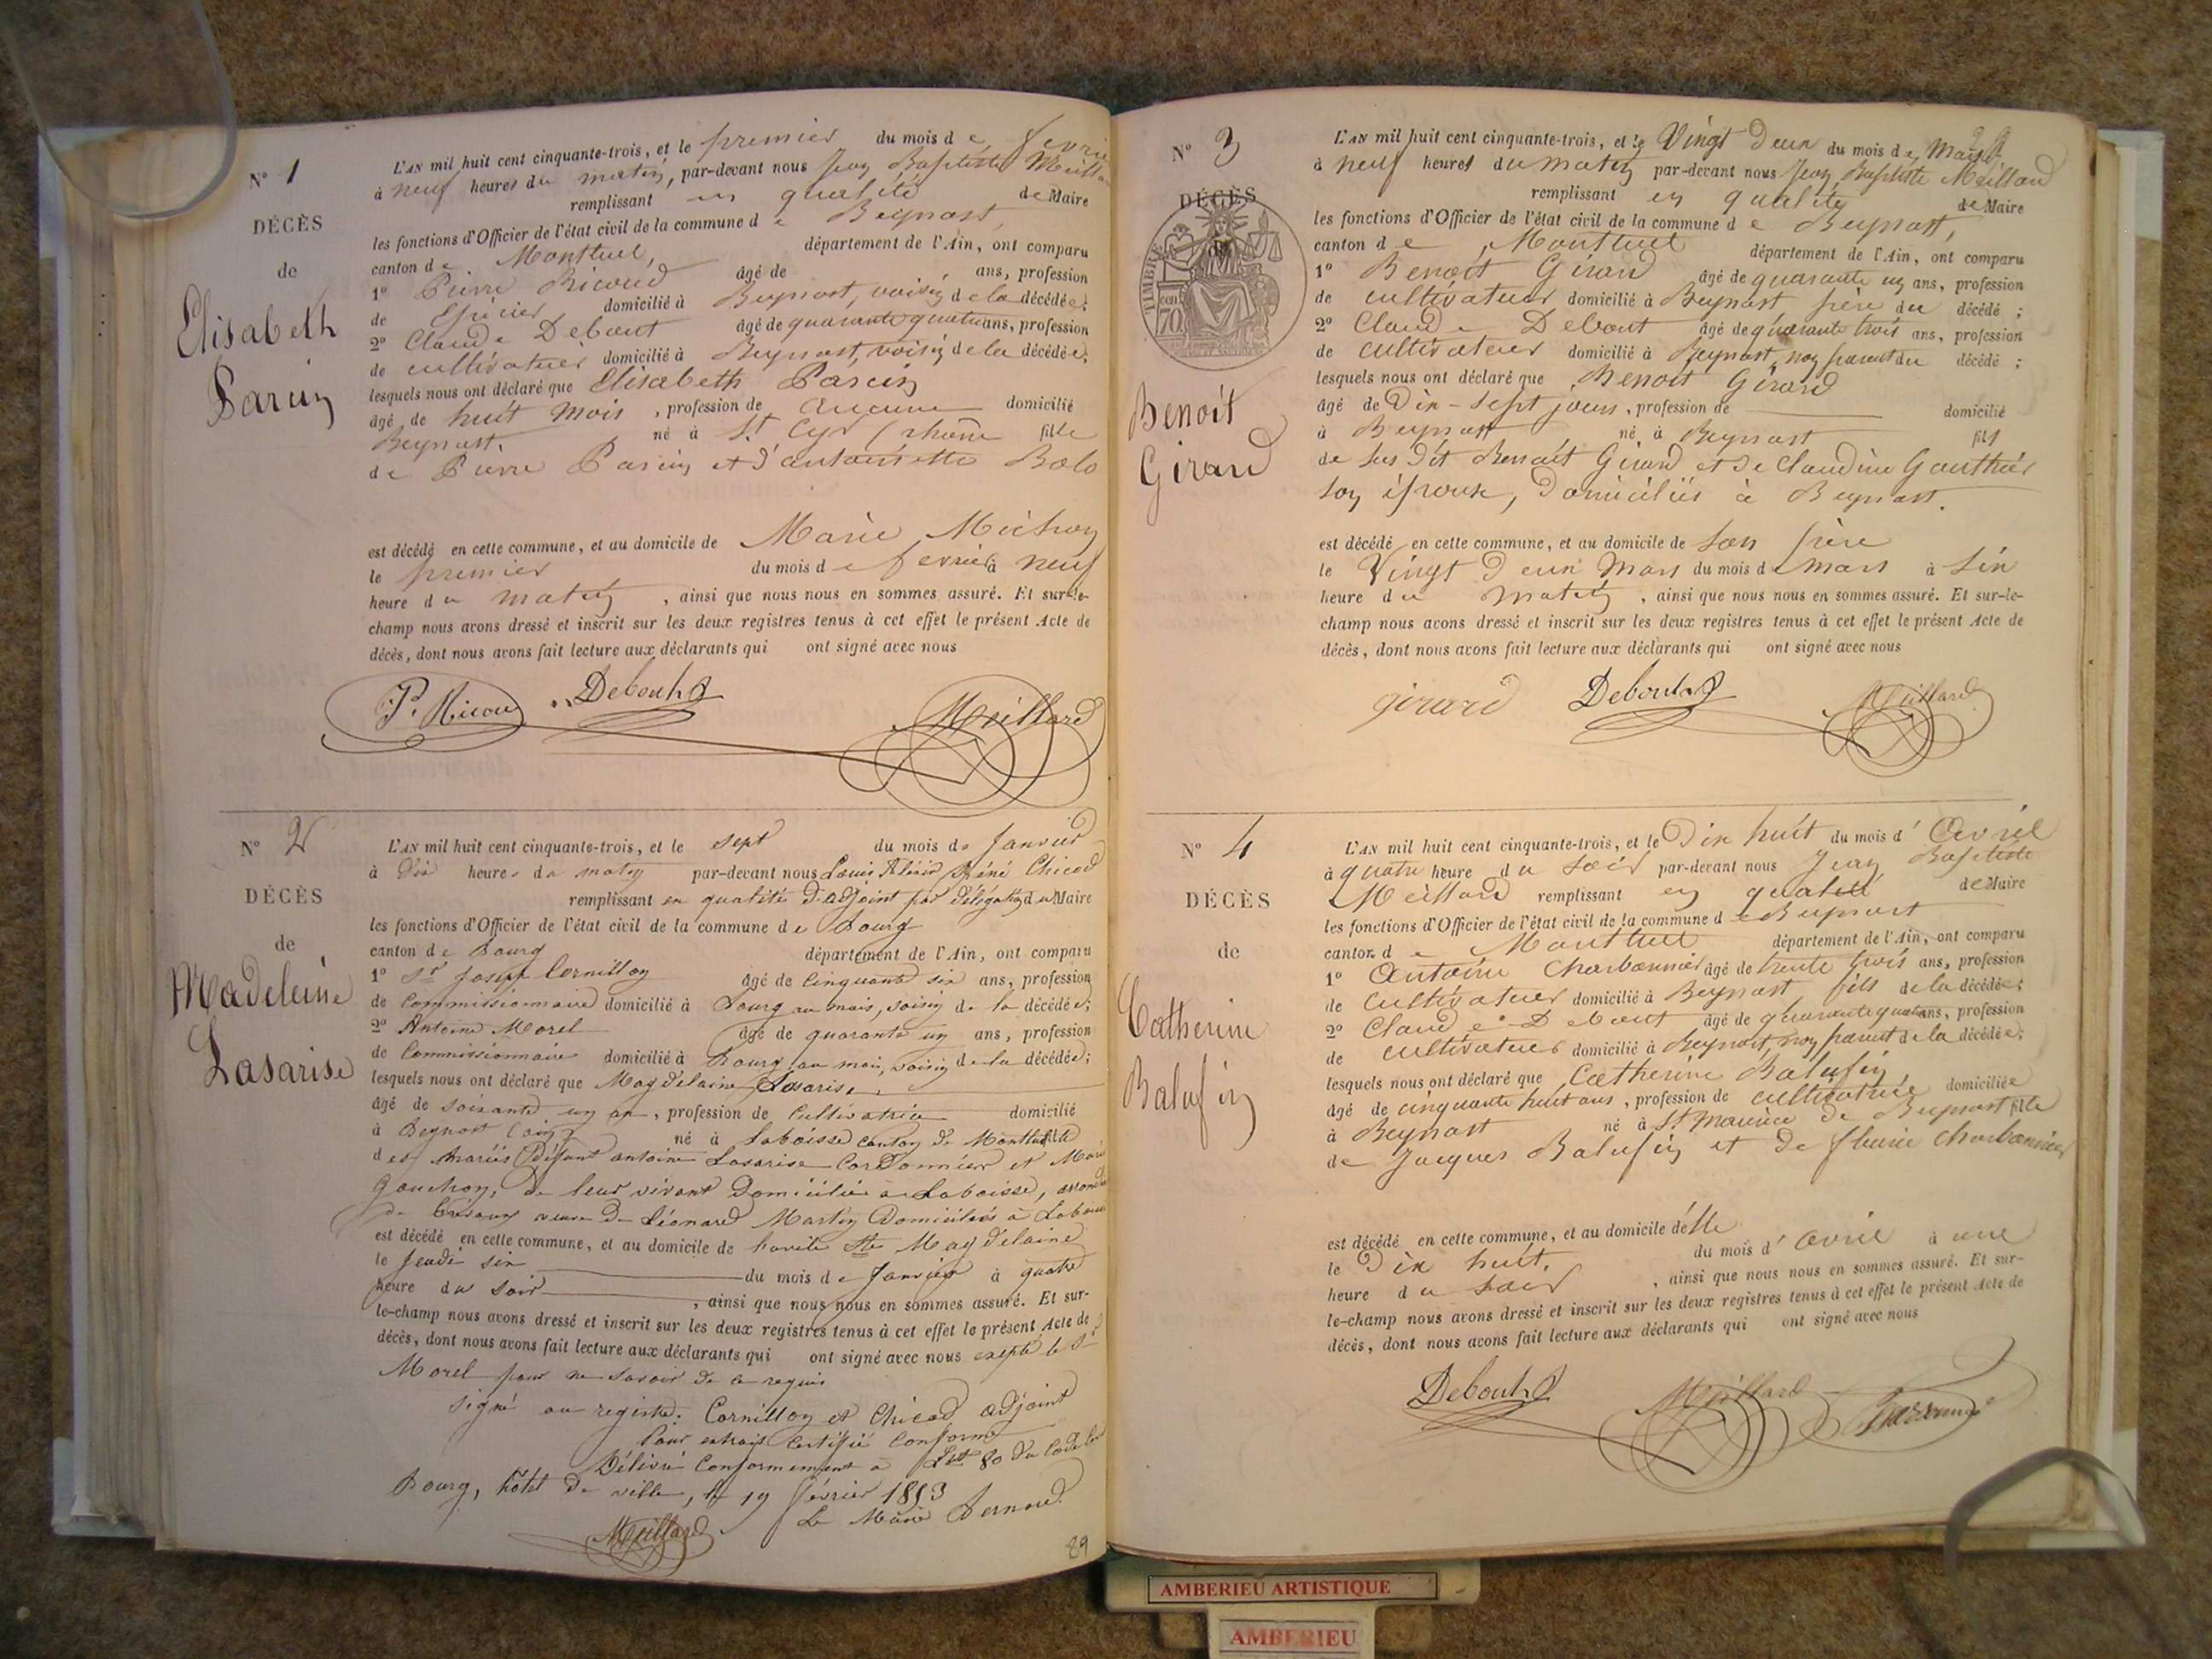 N° 1
DÉCÈS
de
Elisabeth
Parcin
L'AN mil huit cent cinquante-trois, et le premier du mois de fevrier
à neuf heures du matin, par-devant nous Jean Baptiste Meillard
remplissant en qualité de Maire
les fonctions d'Officier de l'état civil de la commune de Beynost
canton de Montluel, département de l'Ain, ont comparu
1° Pierre Ricoud âgé de ans, profession
de Epicier domicilié à Beynost, voisin de la décédée;
2° Claude Debout âgé de quarante quatre ans, profession
de cultivateur domicilié à Beynost, voisin de la décédée;
lesquels nous ont déclaré que Elisabeth Parcin
âgé de huit mois, profession de aucune domicilié
Beynost. né à St Cyr (rhône fille
de Pierre Parcin et d'antoinette Bolo
est décédé en cette commune, et au domicile de Marie Michon
le premier du mois de fevrier à neuf
heure du matin, ainsi que nous nous en sommes assuré. Et sur-le-
champ nous avons dressé et inscrit sur les deux registres tenus à cet effet le présent Acte de
décès, dont nous avons fait lecture aux déclarants qui ont signé avec nous
P. Ricou Debout Meillard
N° 2
DÉCÈS
de
Madeleine
Lasarise
L'AN mil huit cent cinquante-trois, et le sept du mois de Janvier
à dix heures du matin par-devant nous Louis Réné Chicod
remplissant en qualité d'adjoint par délégation du Maire
les fonctions d'Officier de l'état civil de la commune de Bourg
canton de Bourg département de l'Ain, ont comparu
1° Sr Joseph Cornillon âgé de cinquante six ans, profession
de Commissionnaire domicilié à Bourg au mais, voisin de la décédée;
2° Antoine Morel âgé de quarante un ans, profession
de Commissionnaire domicilié à Bourg au mais, voisin de la décédée;
lesquels nous ont déclaré que Magdelaine Lasarise
âgé de soixante un an, profession de Cultivatrice domicilié
à Beynost (ain) né à Laboisse canton de Montluel fille
des mariés Défunt antoine Lasarise Cordonnier et Marie
Gouchon, de leur vivant Domiciliés à Laboisse,
veuve de Léonard Martin Domiciliés à Laboisse
est décédé en cette commune, et au domicile de hospice Ste Magdelaine
le Jeudi six du mois de Janvier à quatre
heure du soir, ainsi que nous nous en sommes assuré. Et sur-
le-champ nous avons dressé et inscrit sur les deux registres tenus à cet effet le présent Acte de
décès, dont nous avons fait lecture aux déclarants qui ont signé avec nous excepté le Sr
Morel pour ne savoir de ce requis
signé au registre: Cornillon et Chicod adjoint
Pour extrait Certifié Conforme
Délivré Conformement à 80 du Code
Bourg, hôtel de ville, le 19 février 1853
Le Maire Bernard
Meillard
89
N° 3
DÉCÈS
de
TIMBRE
70
Benoit
Girard
L'AN mil huit cent cinquante-trois, et le Vingt Deux du mois de Mars
à neuf heures du matin par-devant nous Jean Baptiste Meillard
remplissant en qualité de Maire
les fonctions d'Officier de l'état civil de la commune de Beynost,
canton de Montluel département de l'Ain, ont comparu
1° Benoit Girard âgé de quarante un ans, profession
de cultivateur domicilié à Beynost père du décédé;
2° Claude Debout âgé de quarante trois ans, profession
de cultivateur domicilié à Beynost, non parent du décédé;
lesquels nous ont déclaré que Benoit Girard
âgé de Dix-sept jours, profession de domicilié
à Beynost né à Beynost fils
de sus dit Benoit Girard et de Claudine Gauthier
son épouse, domiciliés à Beynost.
est décédé en cette commune, et au domicile de son père
le Vingt Deux Mars du mois de mars à six
heure du matin, ainsi que nous nous en sommes assuré. Et sur-le-
champ nous avons dressé et inscrit sur les deux registres tenus à cet effet le présent Acte de
décès, dont nous avons fait lecture aux déclarants qui ont signé avec nous
girard Debout Meillard
N° 4
DÉCÈS
de
Catherine
Balufin
L'AN mil huit cent cinquante-trois, et le Dix huit du mois d'Avril
à quatre heure du soir par-devant nous Jean Baptiste
Meillard remplissant en qualité de Maire
les fonctions d'Officier de l'état civil de la commune de Beynost
canton de Montluel département de l'Ain, ont comparu
1° Antoine Charbonnier âgé de trente trois ans, profession
de Cultivateur domicilié à Beynost fils de la décédée;
2° Claude Debout âgé de quarante quatre ans, profession
de cultivateur domicilié à Beynost, non parent de la décédée;
lesquels nous ont déclaré que Catherine Balufin,
âgé de cinquante huit ans, profession de cultivatrice domiciliée
à Beynost né à St Maurice de Beynost fille
de Jacques Balufin et de fleurie Charbonnier
est décédé en cette commune, et au domicile d'elle
le Dix huit. du mois d'avril à une
heure du soir, ainsi que nous nous en sommes assuré. Et sur-
le-champ nous avons dressé et inscrit sur les deux registres tenus à cet effet le présent Acte de
décès, dont nous avons fait lecture aux déclarants qui ont signé avec nous
Debout Meillard
AMBERIEU ARTISTIQUE
AMBERIEU